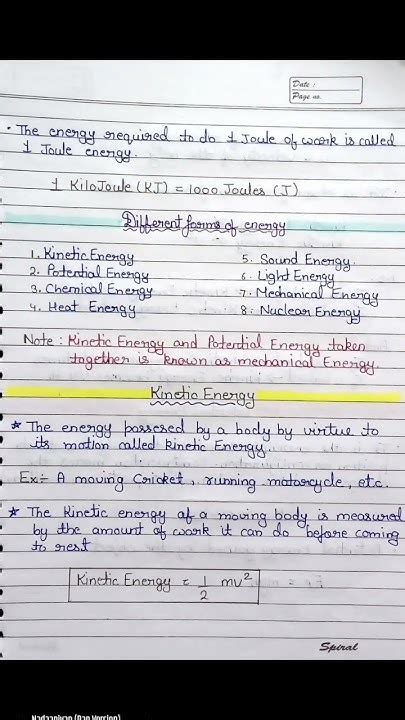 Date :
Page no.
• The energy required to do 1 Joule of work is called
1 Joule energy.
1 KiloJoule (KJ) = 1000 Joules (J)
Different forms of energy
1. Kinetic Energy
2. Potential Energy
3. Chemical Energy
4. Heat Energy
5. Sound Energy.
6. Light Energy
7. Mechanical Energy
8. Nuclear Energy
Note : Kinetic Energy and Potential Energy taken
together is known as mechanical Energy.
Kinetic Energy
* The energy possesed by a body by virtue to
its motion called kinetic Energy.
Ex:- A moving Cricket, running motorcycle, etc.
* The Kinetic energy of a moving body is measured
by the amount of work it can do before coming
to rest
Kinetic Energy = 1/2 mv²
Spiral